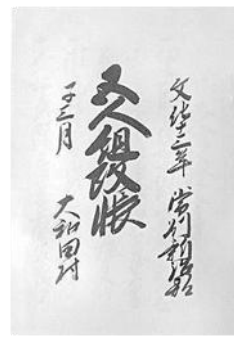 文化十三年
五人組改帳
子三月 大和田村